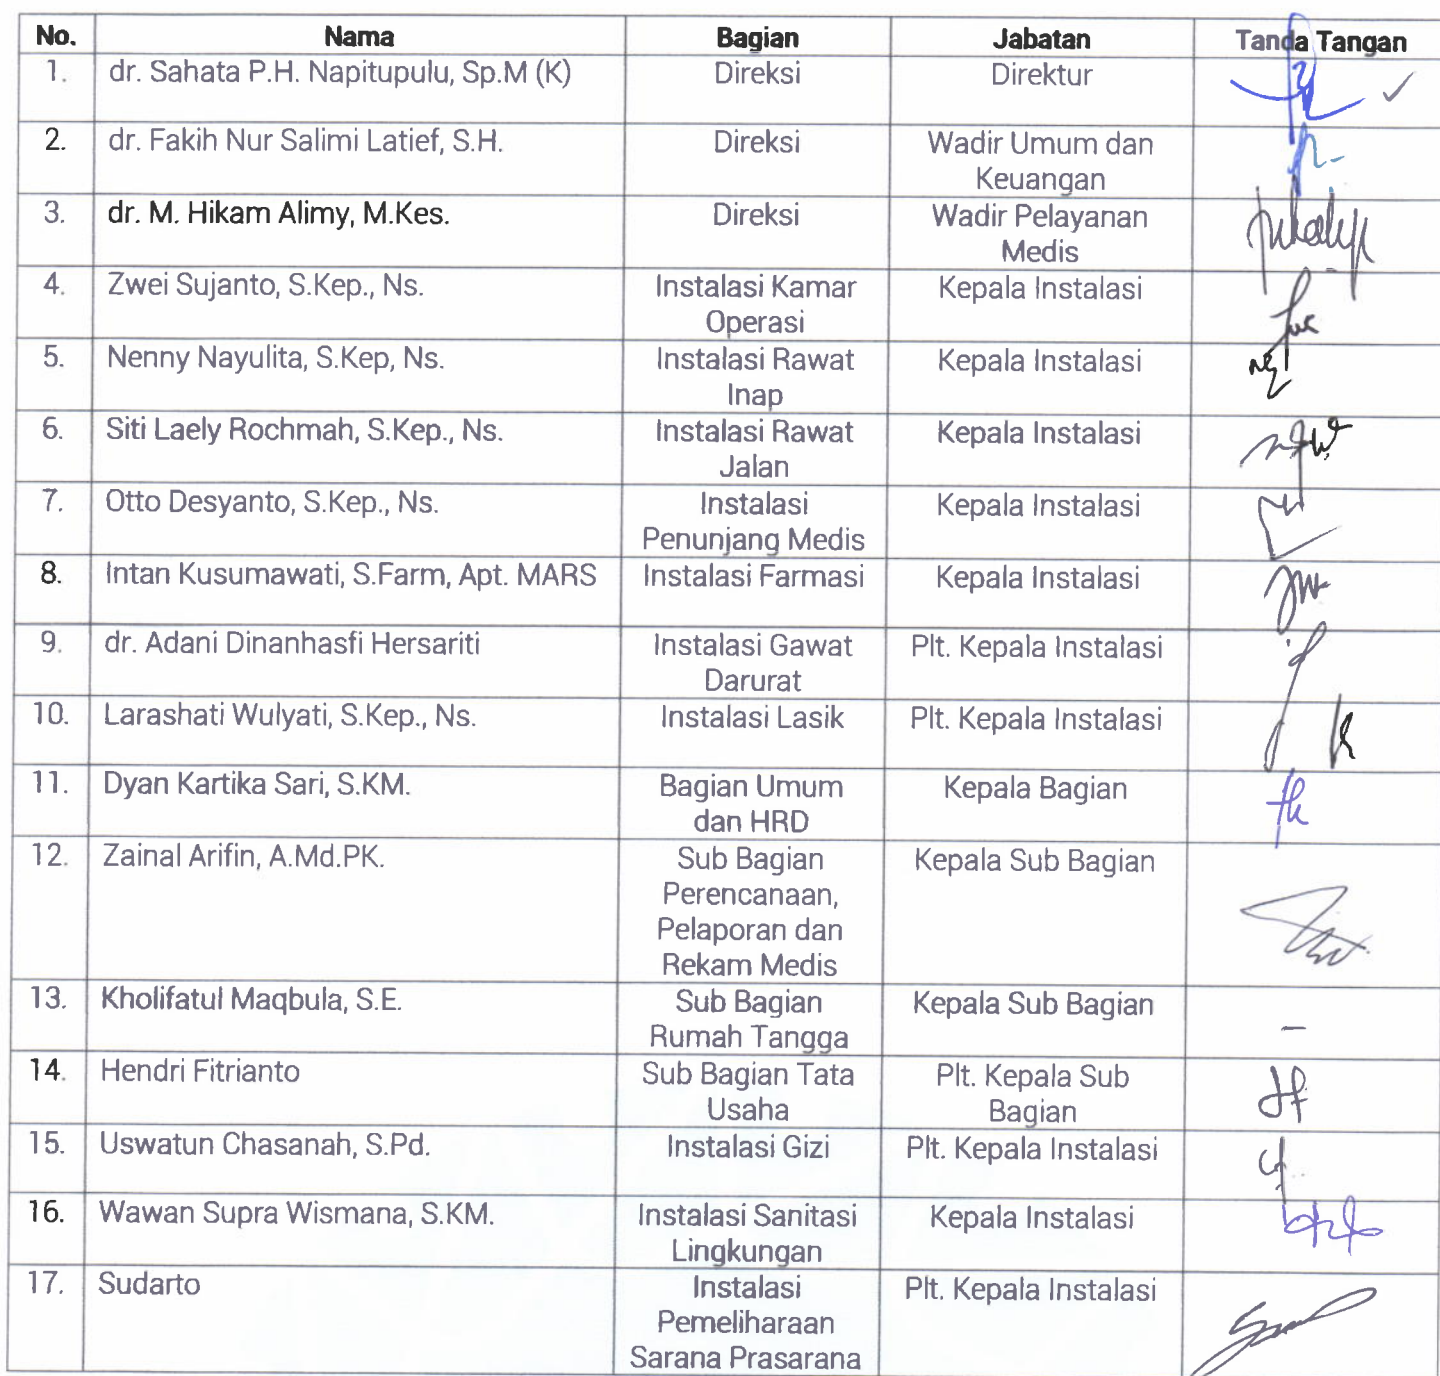 No. Nama Bagian Jabatan Tanda Tangan
1. dr. Sahata P.H. Napitupulu, Sp.M (K) Direksi Direktur
2. dr. Fakih Nur Salimi Latief, S.H. Direksi Wadir Umum dan
Keuangan
3. dr. M. Hikam Alimy, M.Kes. Direksi Wadir Pelayanan
Medis
4. Zwei Sujanto, S.Kep., Ns. Instalasi Kamar Kepala Instalasi
Operasi
5. Nenny Nayulita, S.Kep, Ns. Instalasi Rawat Kepala Instalasi
Inap
6. Siti Laely Rochmah, S.Kep., Ns. Instalasi Rawat Kepala Instalasi
Jalan
7. Otto Desyanto, S.Kep., Ns. Instalasi Kepala Instalasi
Penunjang Medis
8. Intan Kusumawati, S.Farm, Apt. MARS Instalasi Farmasi Kepala Instalasi
9. dr. Adani Dinanhasfi Hersariti Instalasi Gawat Plt. Kepala Instalasi
Darurat
10. Larashati Wulyati, S.Kep., Ns. Instalasi Lasik Plt. Kepala Instalasi
11. Dyan Kartika Sari, S.KM. Bagian Umum Kepala Bagian
dan HRD
12. Zainal Arifin, A.Md.PK. Sub Bagian Kepala Sub Bagian
Perencanaan,
Pelaporan dan
Rekam Medis
13. Kholifatul Maqbula, S.E. Sub Bagian Kepala Sub Bagian –
Rumah Tangga
14. Hendri Fitrianto Sub Bagian Tata Plt. Kepala Sub
Usaha Bagian
15. Uswatun Chasanah, S.Pd. Instalasi Gizi Plt. Kepala Instalasi
16. Wawan Supra Wismana, S.KM. Instalasi Sanitasi Kepala Instalasi
Lingkungan
17. Sudarto Instalasi Plt. Kepala Instalasi
Pemeliharaan
Sarana Prasarana